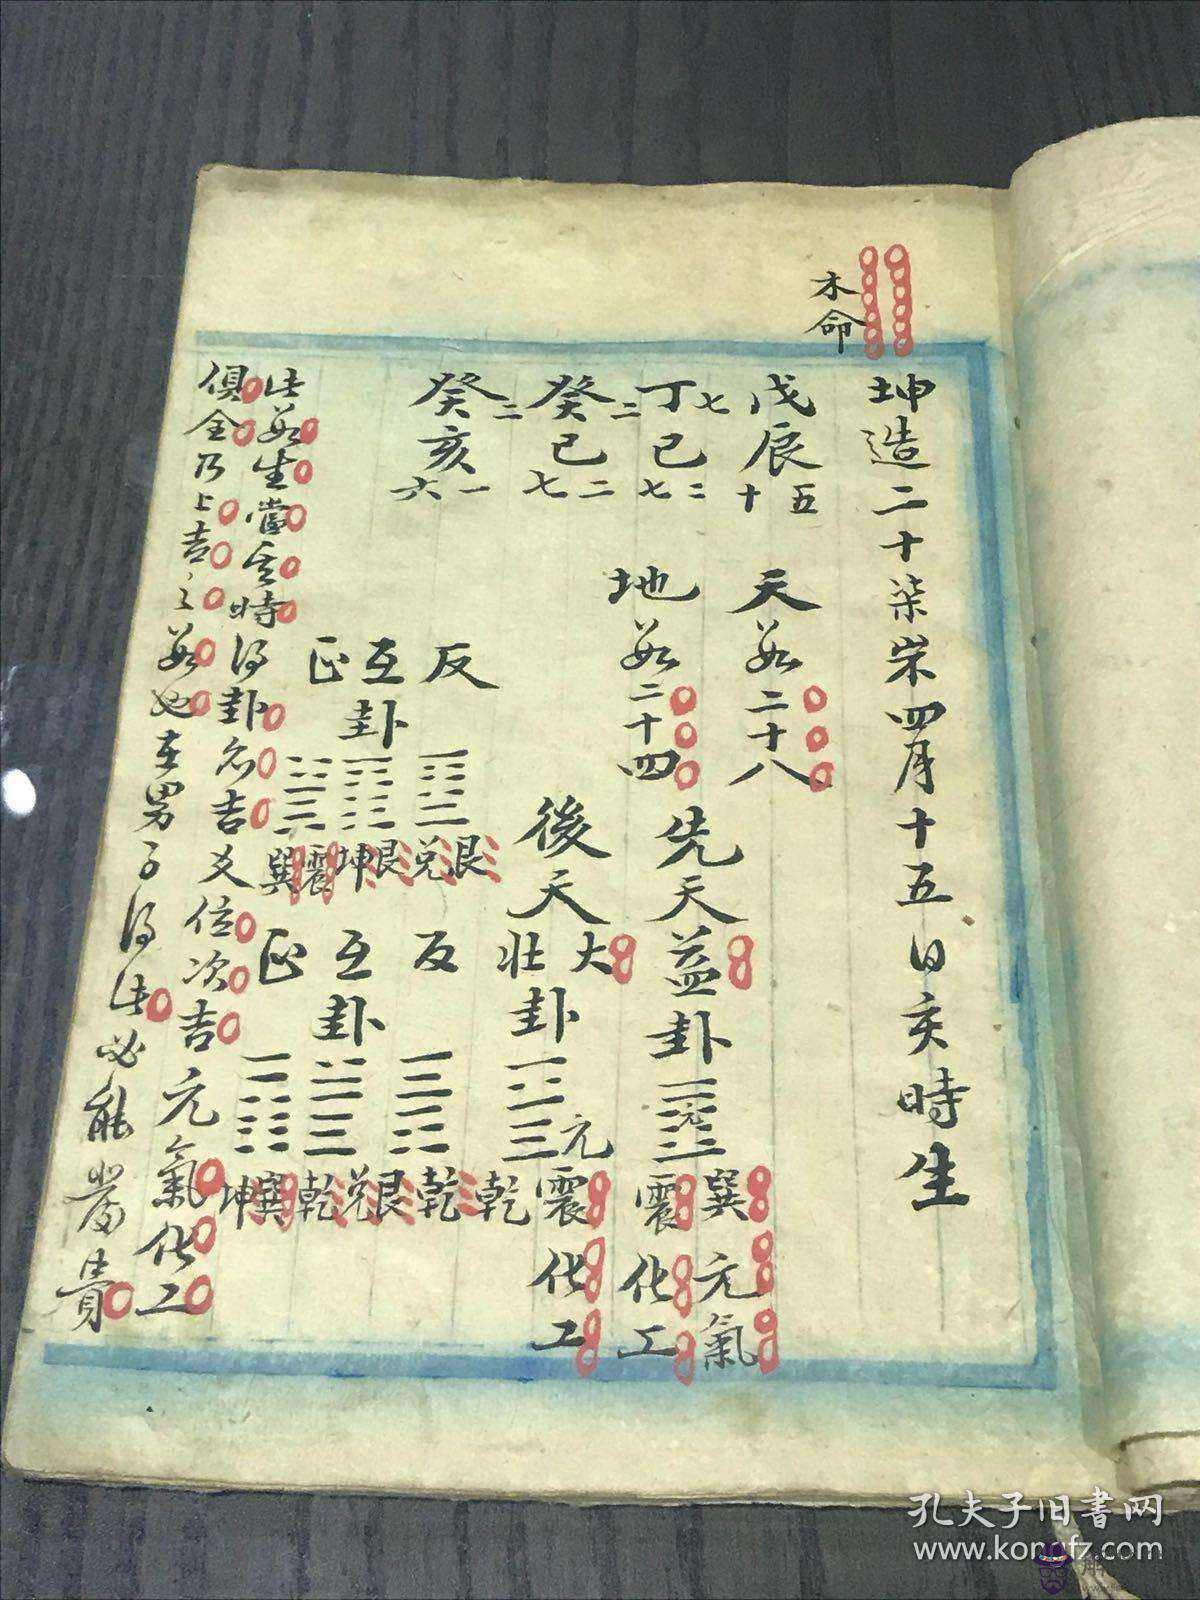 木命
坤造二十柒岁四月十五日亥時生
戊辰 五十
七丁巳 二七
二癸巳 二七
二癸亥 一六
天数二十八
地数二十四
先天益卦 元
巽震
元氣
化工
後天大壮卦 元
震乾
化工
反
互卦
正
艮兑
艮坤
震巽
反
互卦
正
乾
艮兑乾
巽坤
此数生當 時得卦名吉爻位次吉元氣化工
俱全乃上吉之数也在男子得此必能 貴
孔夫子旧書网
www.kongfz.com